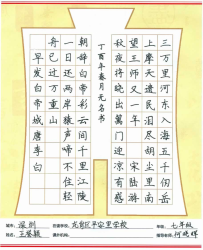 三万里河东入海五千仞岳
上摩天遗民泪尽胡尘里南
望王师又一年 宋陆游
秋夜将晓出篱门迎凉有感
丁酉年春月无名书
朝辞白帝彩云间千里江陵
一日还两岸猿声啼不住轻
舟已过万重山
早发白帝城唐李白
城市：深圳 学校：龙岗区平安里学校 年级：七年级
姓名：王馨颖 指导老师：何晓辉